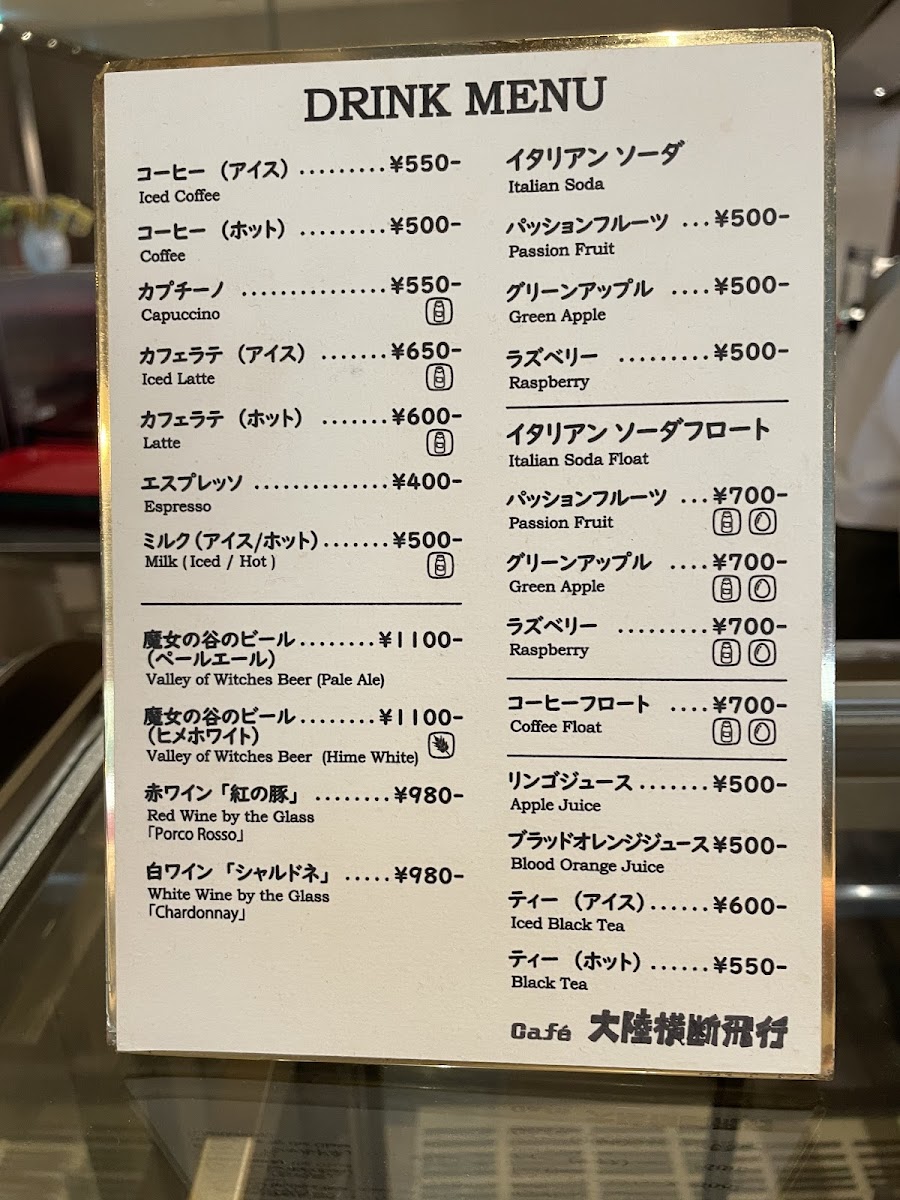 DRINK MENU
コーヒー（アイス）.........¥550-
Iced Coffee
コーヒー（ホット）.........¥500-
Coffee
カプチーノ ...............¥550-
Capuccino
カフェラテ（アイス）.......¥650-
Iced Latte
カフェラテ（ホット）.......¥600-
Latte
エスプレッソ ..............¥400-
Espresso
ミルク(アイス/ホット).......¥500-
Milk ( Iced / Hot )
魔女の谷のビール........¥1100-
(ペールエール)
Valley of Witches Beer (Pale Ale)
魔女の谷のビール........¥1100-
(ヒメホワイト)
Valley of Witches Beer (Hime White)
赤ワイン「紅の豚」........¥980-
Red Wine by the Glass
「Porco Rosso」
白ワイン「シャルドネ」.....¥980-
White Wine by the Glass
「Chardonnay」
イタリアン ソーダ
Italian Soda
パッションフルーツ ...¥500-
Passion Fruit
グリーンアップル ....¥500-
Green Apple
ラズベリー .........¥500-
Raspberry
イタリアン ソーダフロート
Italian Soda Float
パッションフルーツ ...¥700-
Passion Fruit
グリーンアップル ....¥700-
Green Apple
ラズベリー .........¥700-
Raspberry
コーヒーフロート ....¥700-
Coffee Float
リンゴジュース.......¥500-
Apple Juice
ブラッドオレンジジュース¥500-
Blood Orange Juice
ティー（アイス）......¥600-
Iced Black Tea
ティー（ホット）......¥550-
Black Tea
Café 大陸横断飛行